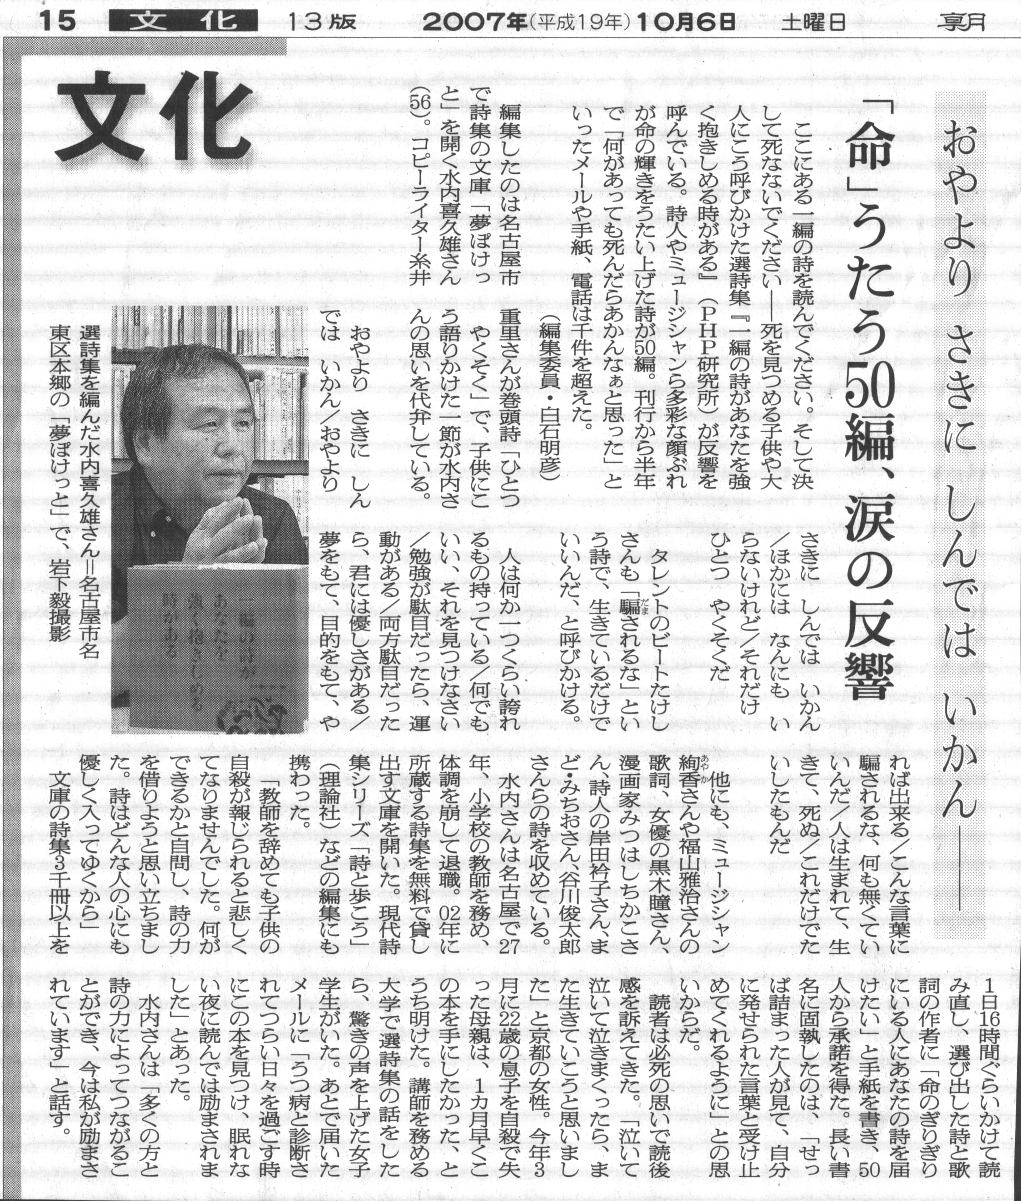 15 文化 13版 2007年(平成19年)10月6日 土曜日 朝
文化
おやより さきに しんでは いかん――
「命」うたう50編、涙の反響
ここにある一編の詩を読んでください。そして決
して死なないでください――死を見つめる子供や大
人にこう呼びかけた選詩集『一編の詩があなたを強
く抱きしめる時がある』(PHP研究所)が反響を
呼んでいる。詩人やミュージシャンら多彩な顔ぶれ
が命の輝きをうたい上げた詩が50編。刊行から半年
で「何があっても死んだらあかんなぁと思った」と
いったメールや手紙、電話は千件を超えた。
(編集委員・白石明彦)
編集したのは名古屋市
で詩集の文庫「夢ぽけっ
と」を開く水内喜久雄さん
(56)。コピーライター糸井
重里さんが巻頭詩「ひとつ
やくそく」で、子供にこ
う語りかけた一節が水内さ
んの思いを代弁している。
おやより さきに しん
では いかん/おやより
さきに しんでは いかん
/ほかには なんにも い
らないけれど/それだけ
ひとつ やくそくだ
タレントのビートたけし
さんも「騙されるな」とい
だま
う詩で、生きているだけで
いいんだ、と呼びかける。
人は何か一つくらい誇れ
るもの持っている/何でも
いい、それを見つけなさい
/勉強が駄目だったら、運
動がある/両方駄目だった
ら、君には優しさがある/
夢をもて、目的をもて、や
れば出来る/こんな言葉に
騙されるな、何も無くてい
いんだ/人は生まれて、生
きて、死ぬ/これだけでた
いしたもんだ
他にも、ミュージシャン
絢香さんや福山雅治さんの
あやか
歌詞、女優の黒木瞳さん、
漫画家みつはしちかこさ
ん、詩人の岸田衿子さん、ま
ど・みちおさん、谷川俊太郎
さんらの詩を収めている。
水内さんは名古屋で27
年、小学校の教師を務め、
体調を崩して退職。02年に
所蔵する詩集を無料で貸し
出す文庫を開いた。現代詩
集シリーズ「詩と歩こう」
(理論社)などの編集にも
携わった。
「教師を辞めても子供の
自殺が報じられると悲しく
てなりませんでした。何が
できるかと自問し、詩の力
を借りようと思い立ちまし
た。詩はどんな人の心にも
優しく入ってゆくから」
文庫の詩集3千冊以上を
1日16時間ぐらいかけて読
み直し、選び出した詩と歌
詞の作者に「命のぎりぎり
にいる人にあなたの詩を届
けたい」と手紙を書き、50
人から承諾を得た。長い書
名に固執したのは、「せっ
ぱ詰まった人が見て、自分
に発せられた言葉と受け止
めてくれるように」との思
いからだ。
読者は必死の思いで読後
感を訴えてきた。「泣いて
泣いて泣きまくったら、ま
た生きていこうと思いまし
た」と京都の女性。今年3
月に22歳の息子を自殺で失
った母親は、1カ月早くこ
の本を手にしたかった、と
うち明けた。講師を務める
大学で選詩集の話をした
ら、驚きの声を上げた女子
学生がいた。あとで届いた
メールに「うつ病と診断さ
れてつらい日々を過ごす時
にこの本を見つけ、眠れな
い夜に読んでは励まされま
した」とあった。
水内さんは「多くの方と
詩の力によってつながるこ
とができ、今は私が励まさ
れています」と話す。
選詩集を編んだ水内喜久雄さん=名古屋市名
東区本郷の「夢ぽけっと」で、岩下毅撮影
一編の詩が
あなたを
強く抱きしめる
時がある